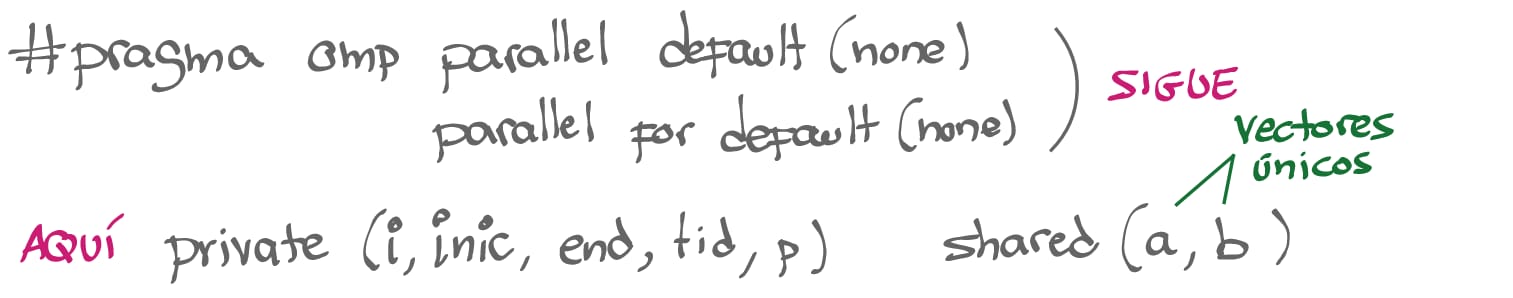 #pragma omp parallel default (none)
parallel for default (none)
SIGUE
vectores
únicos
AQUÍ private (i, inic, end, tid, p) shared (a, b)